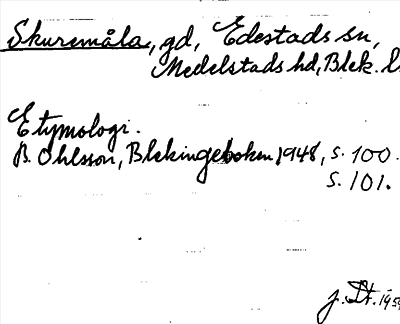 Skuremåla, gd, Edestads sn,
Medelstads hd, Blek. l
Etymologi.
B. Ohlsson, Blekingeboken 1948, s. 100.
s. 101.